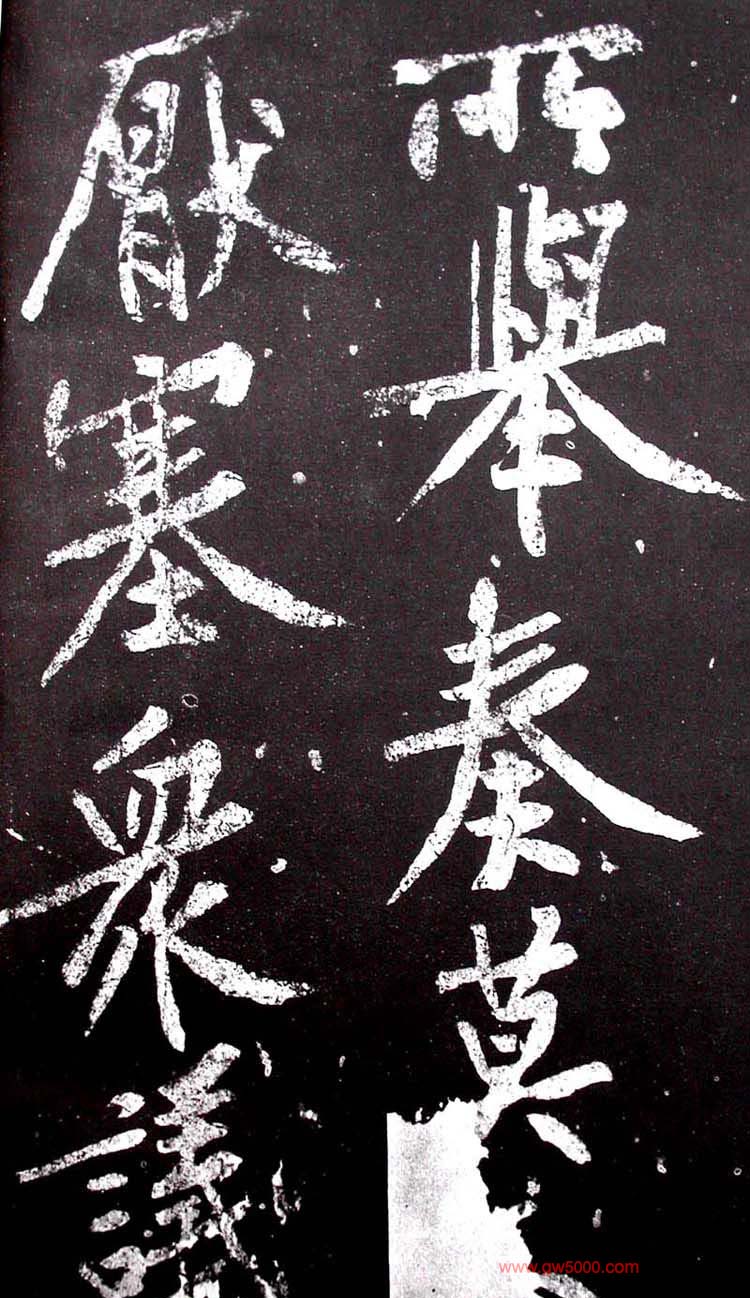 所舉奏莫
厭塞眾議
www.gw5000.com